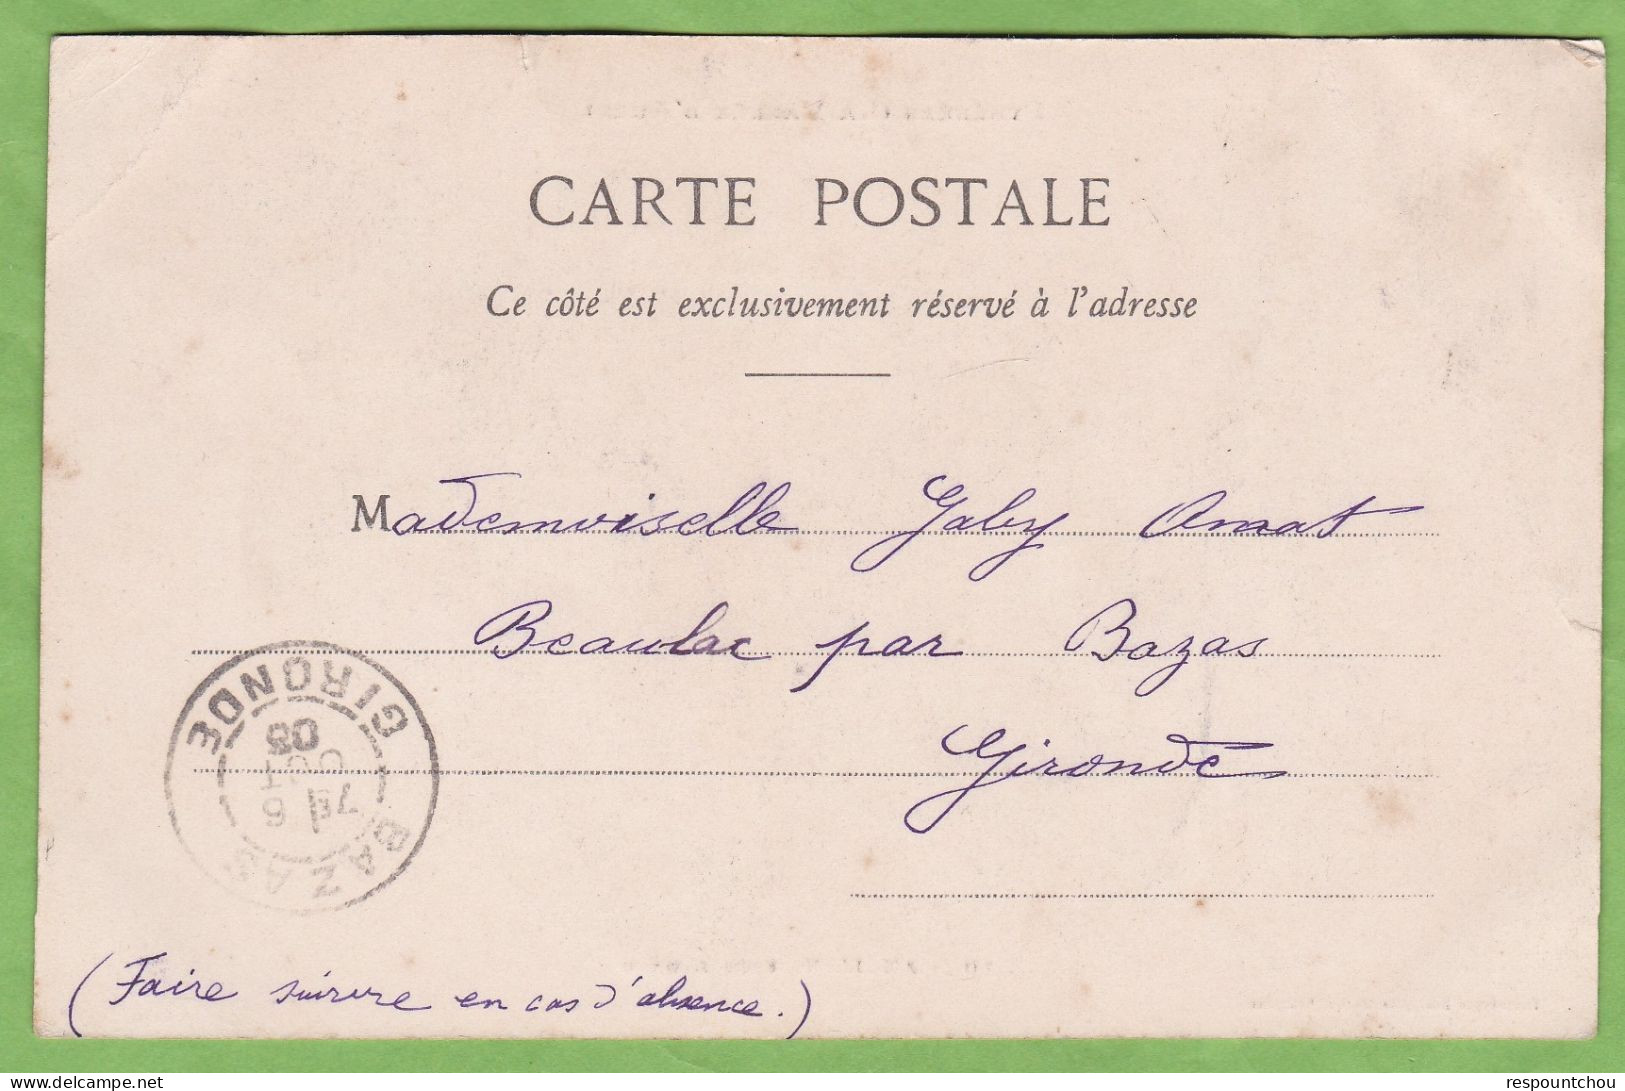 CARTE POSTALE
Ce côté est exclusivement réservé à l'adresse
Mademoiselle Gaby Amat
Beaulac par Bazas
Gironde
GIRONDE
03
BAZAS
(Faire suivre en cas d'absence.)
delcampe.net
respountchou